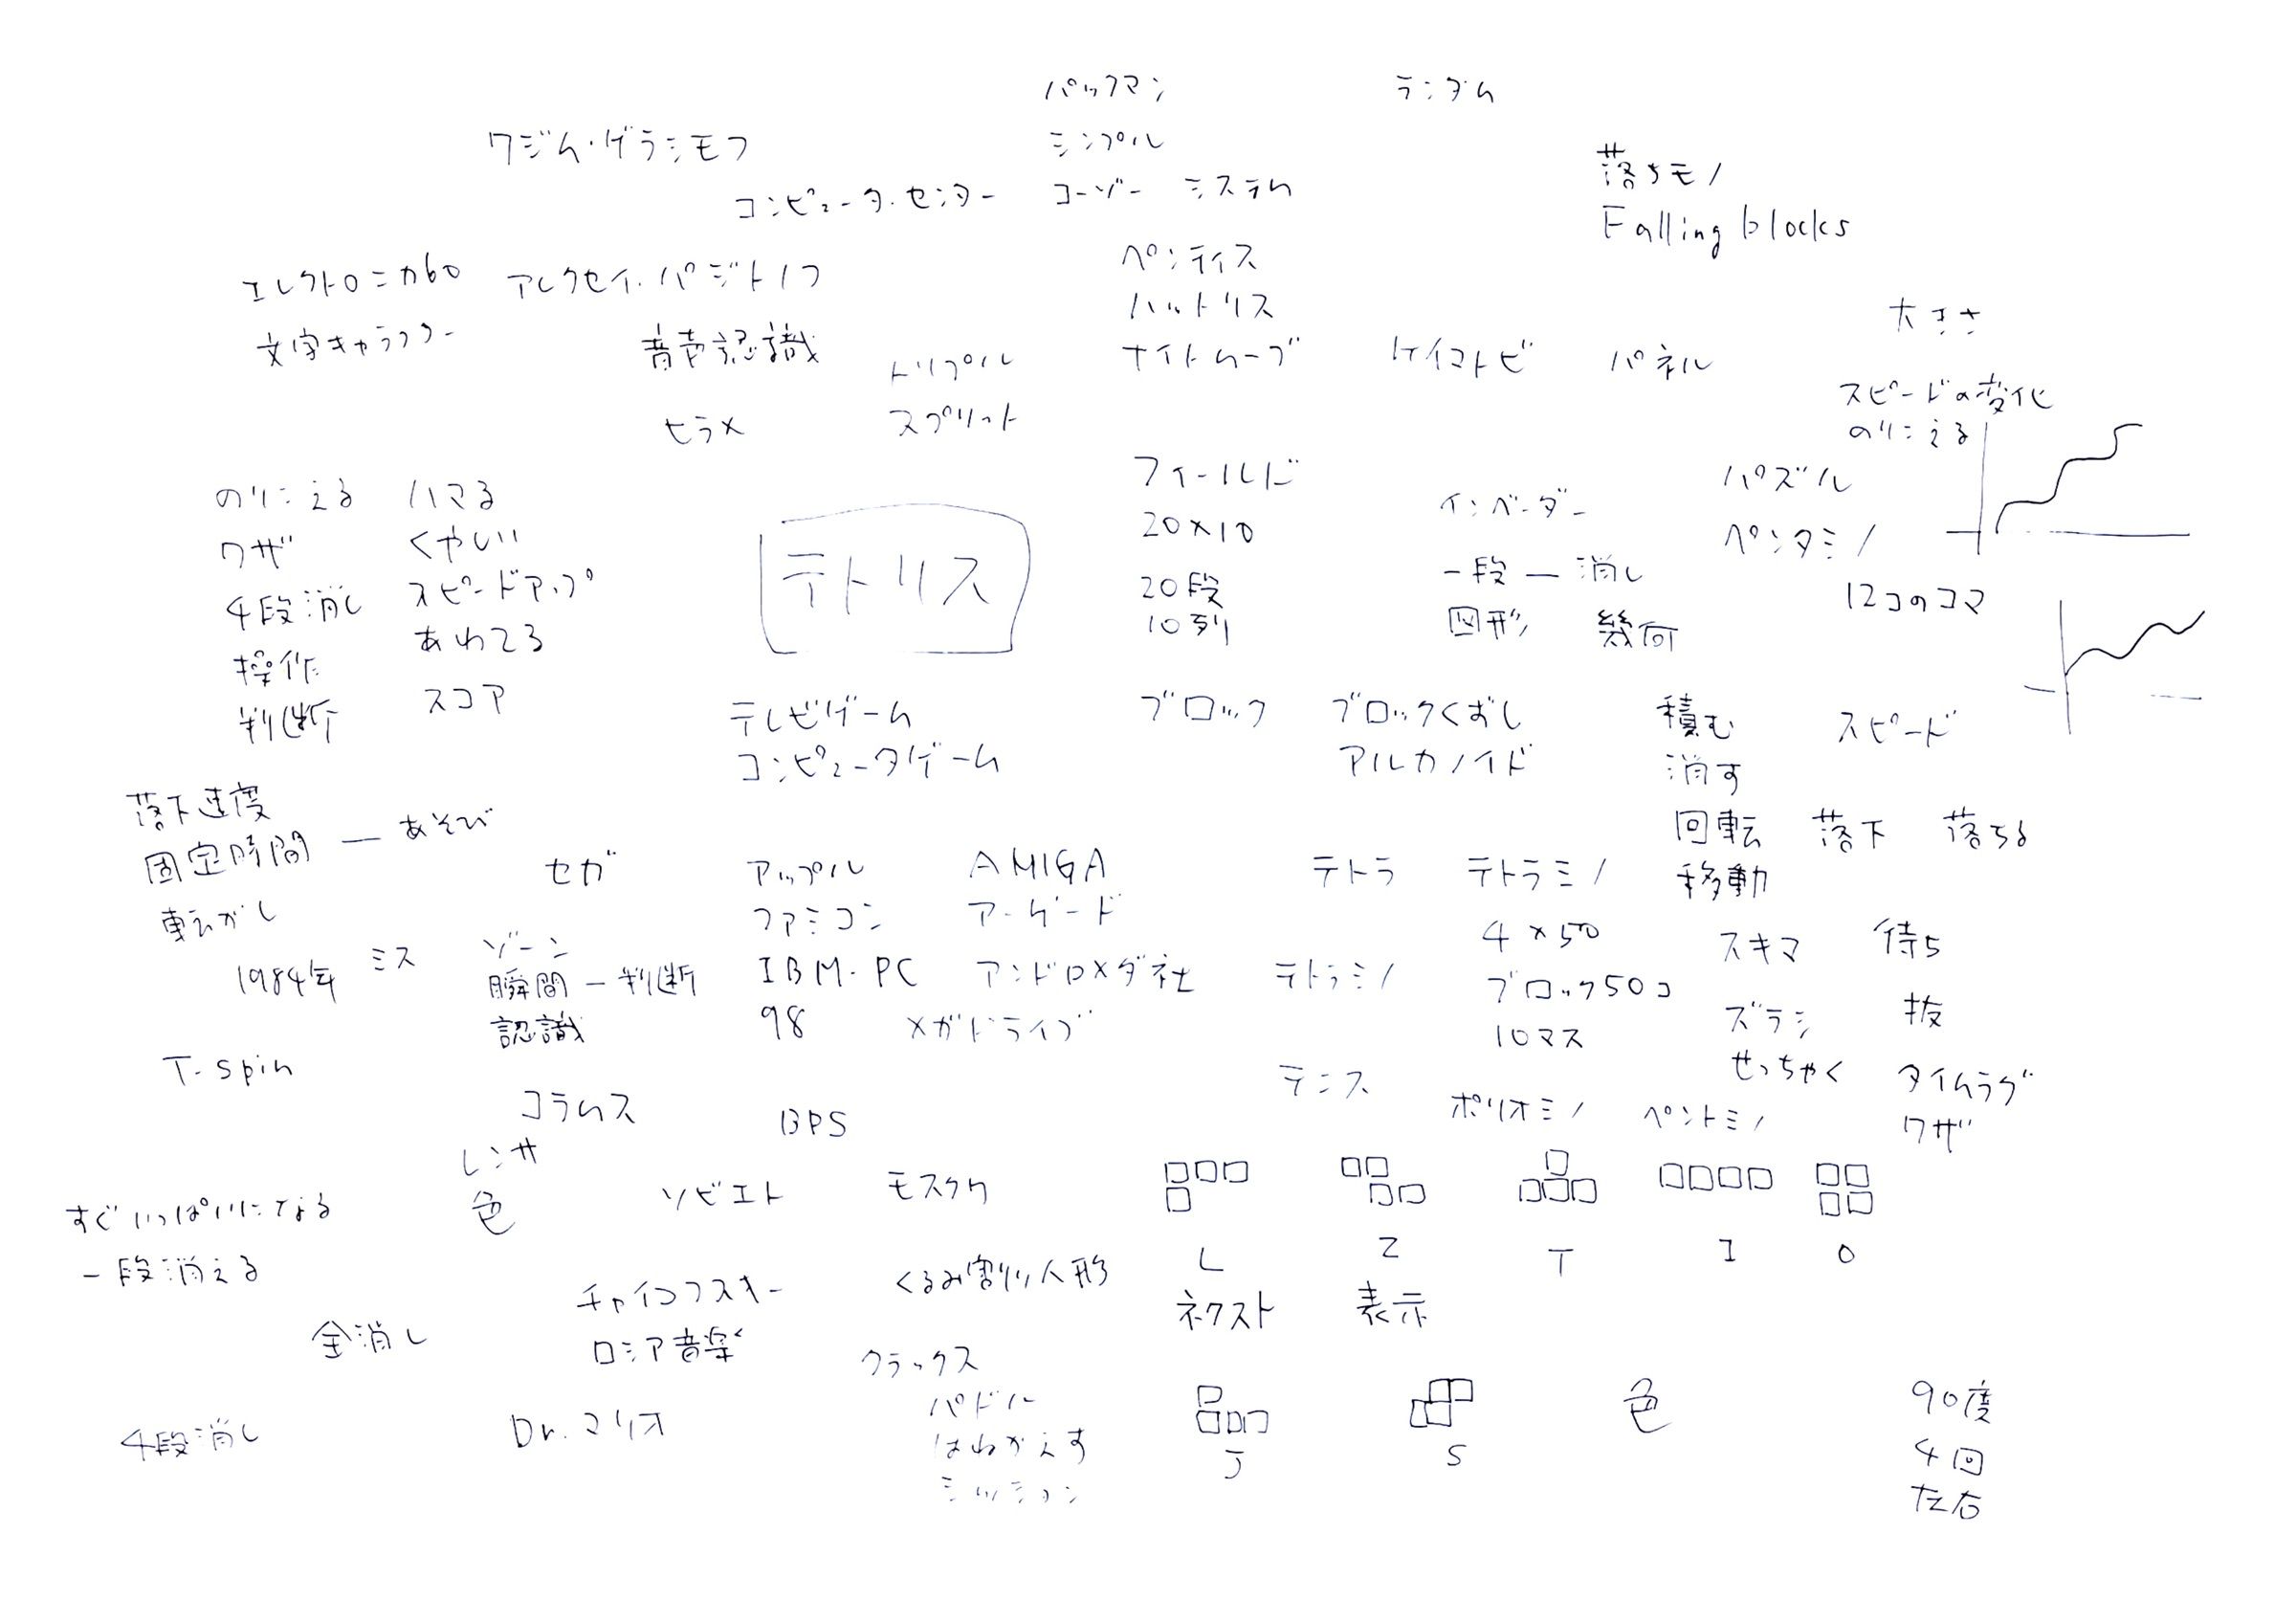 パックマン
ランダム
シンプル
ワジム・ゲラシモフ
コンピュータ・センター
コーゾー システム
落ちモノ
Falling blocks
エレクトロニカ60
アレクセイ・パジトノフ
ペンティス
ハットリス
ナイトムーブ
文字キャラクター
音声認識
トリプル
スプリット
ヒラメ
ケイマトビ
パネル
大きさ
スピードの変化
のりこえる
のりこえる
ワザ
4段消し
操作
判断
ハマる
くやしい
スピードアップ
あわてる
スコア
テトリス
フィールド
20×10
20段
10列
インベーダー
一段 ― 消し
図形 幾何
パズル
ペンタミノ
12コのコマ
テレビゲーム
コンピュータゲーム
ブロック
ブロックくずし
アルカノイド
積む
消す
回転
移動
スピード
落下 落ちる
落下速度
固定時間 ― あそび
転がし
1984年
ミス
セガ
ゾーン
瞬間 ― 判断
認識
アップル
ファミコン
IBM・PC
98
AMIGA
アーケード
アンドロメダ社
メガドライブ
テトラ
テトラミノ
4×50
ブロック50コ
10マス
テトラミノ
テニス
スキマ
ズラシ
せっちゃく
待ち
抜
タイムラグ
ワザ
T-spin
コラムス
BPS
ポリオミノ
ペントミノ
レンサ
色
ソビエト
モスクワ
すぐいっぱいになる
一段消える
L
Z
T
I
O
ネクスト 表示
チャイコフスキー
ロシア音楽
くるみ割り人形
全消し
クラックス
パドル
はねかえす
ミッション
4段消し
Dr.マリオ
J
S
色
90度
4回
左右